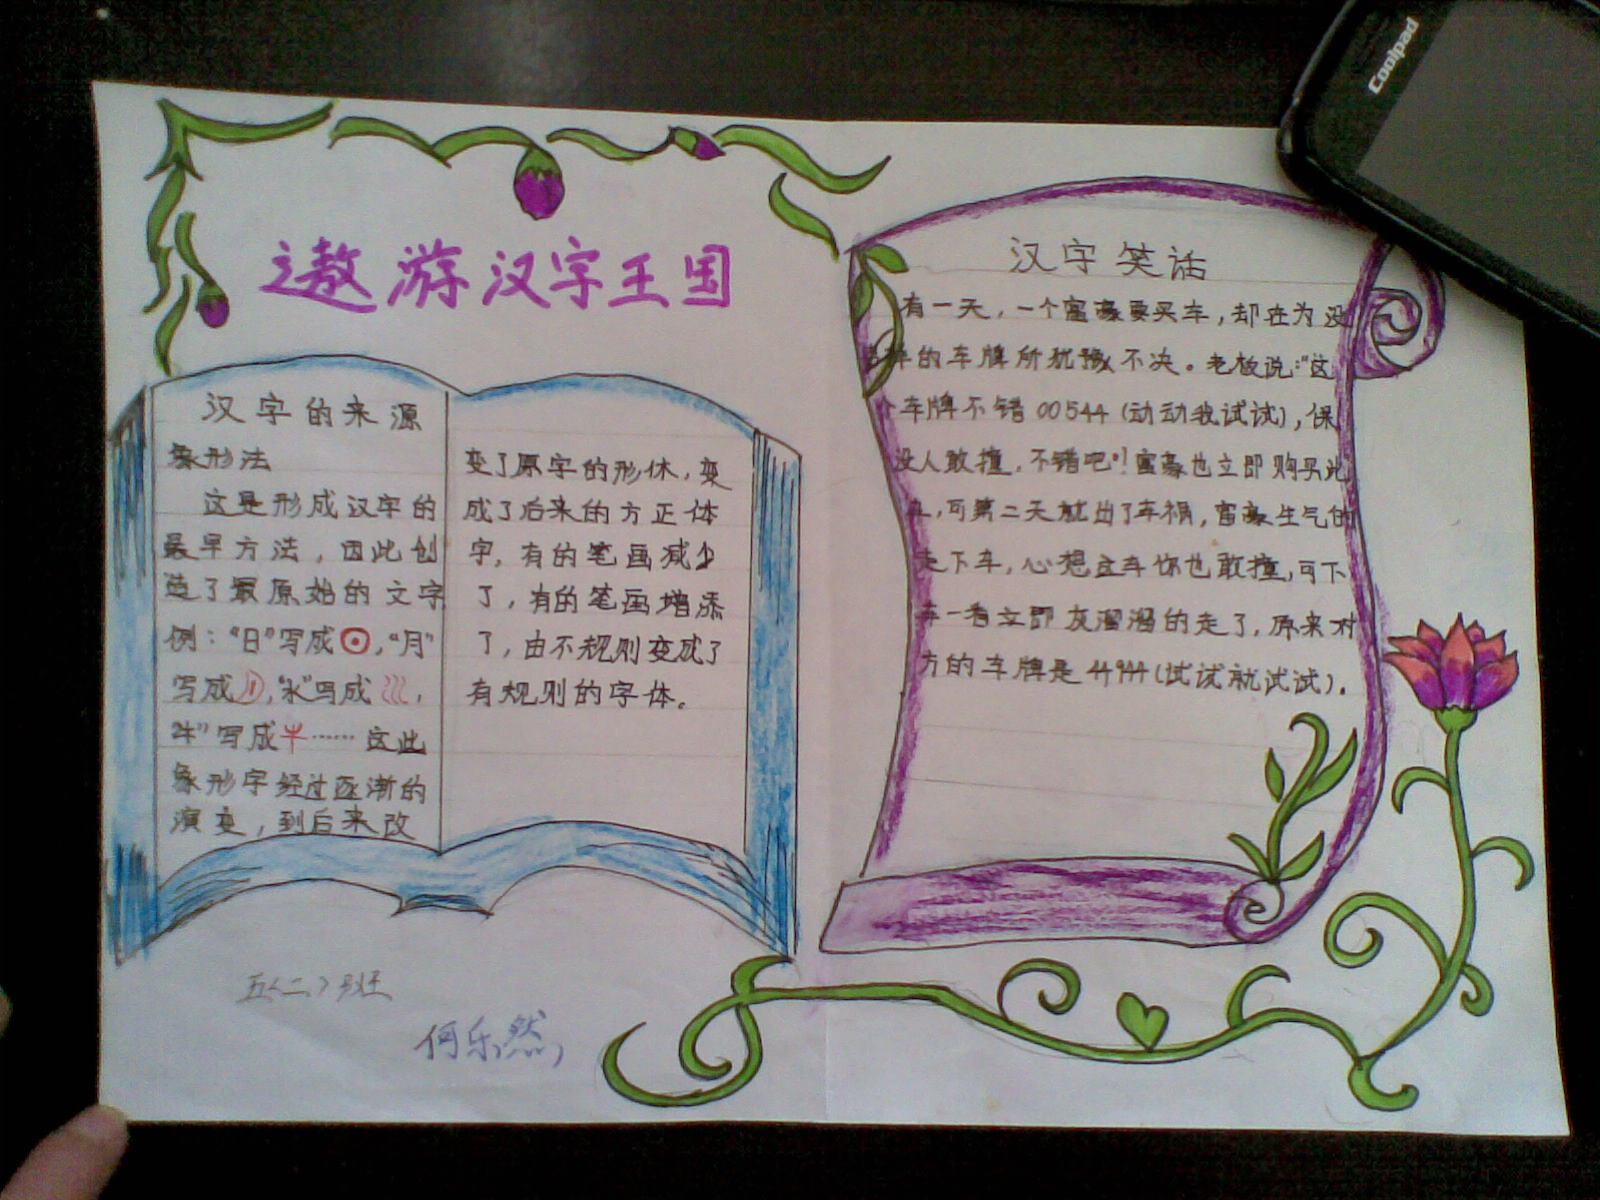 Coolpad
遨游汉字王国
汉字的来源
象形法
这是形成汉字的
最早方法，因此创
造了最原始的文字
例：“日”写成，“月”
写成，“水”写成，
“牛”写成……这此
象形字经过逐渐的
演变，到后来改
变了原字的形休，变
成了后来的方正体
字，有的笔画减少
了，有的笔画增添
了，由不规则变成了
有规则的字体。
汉字笑话
有一天，一个富豪要买车，却在为没
的车牌所犹豫不决。老板说：“这
个车牌不错00544（动动我试试），保
没人敢撞，不错吧”！富豪也立即购买此
，可第二天就出了车祸，富豪生气的
走下车，心想这车你也敢撞，可下
车一看立即灰溜溜的走了，原来对
方的车牌是44944（试试就试试）。
五〈二〉班
何乐然